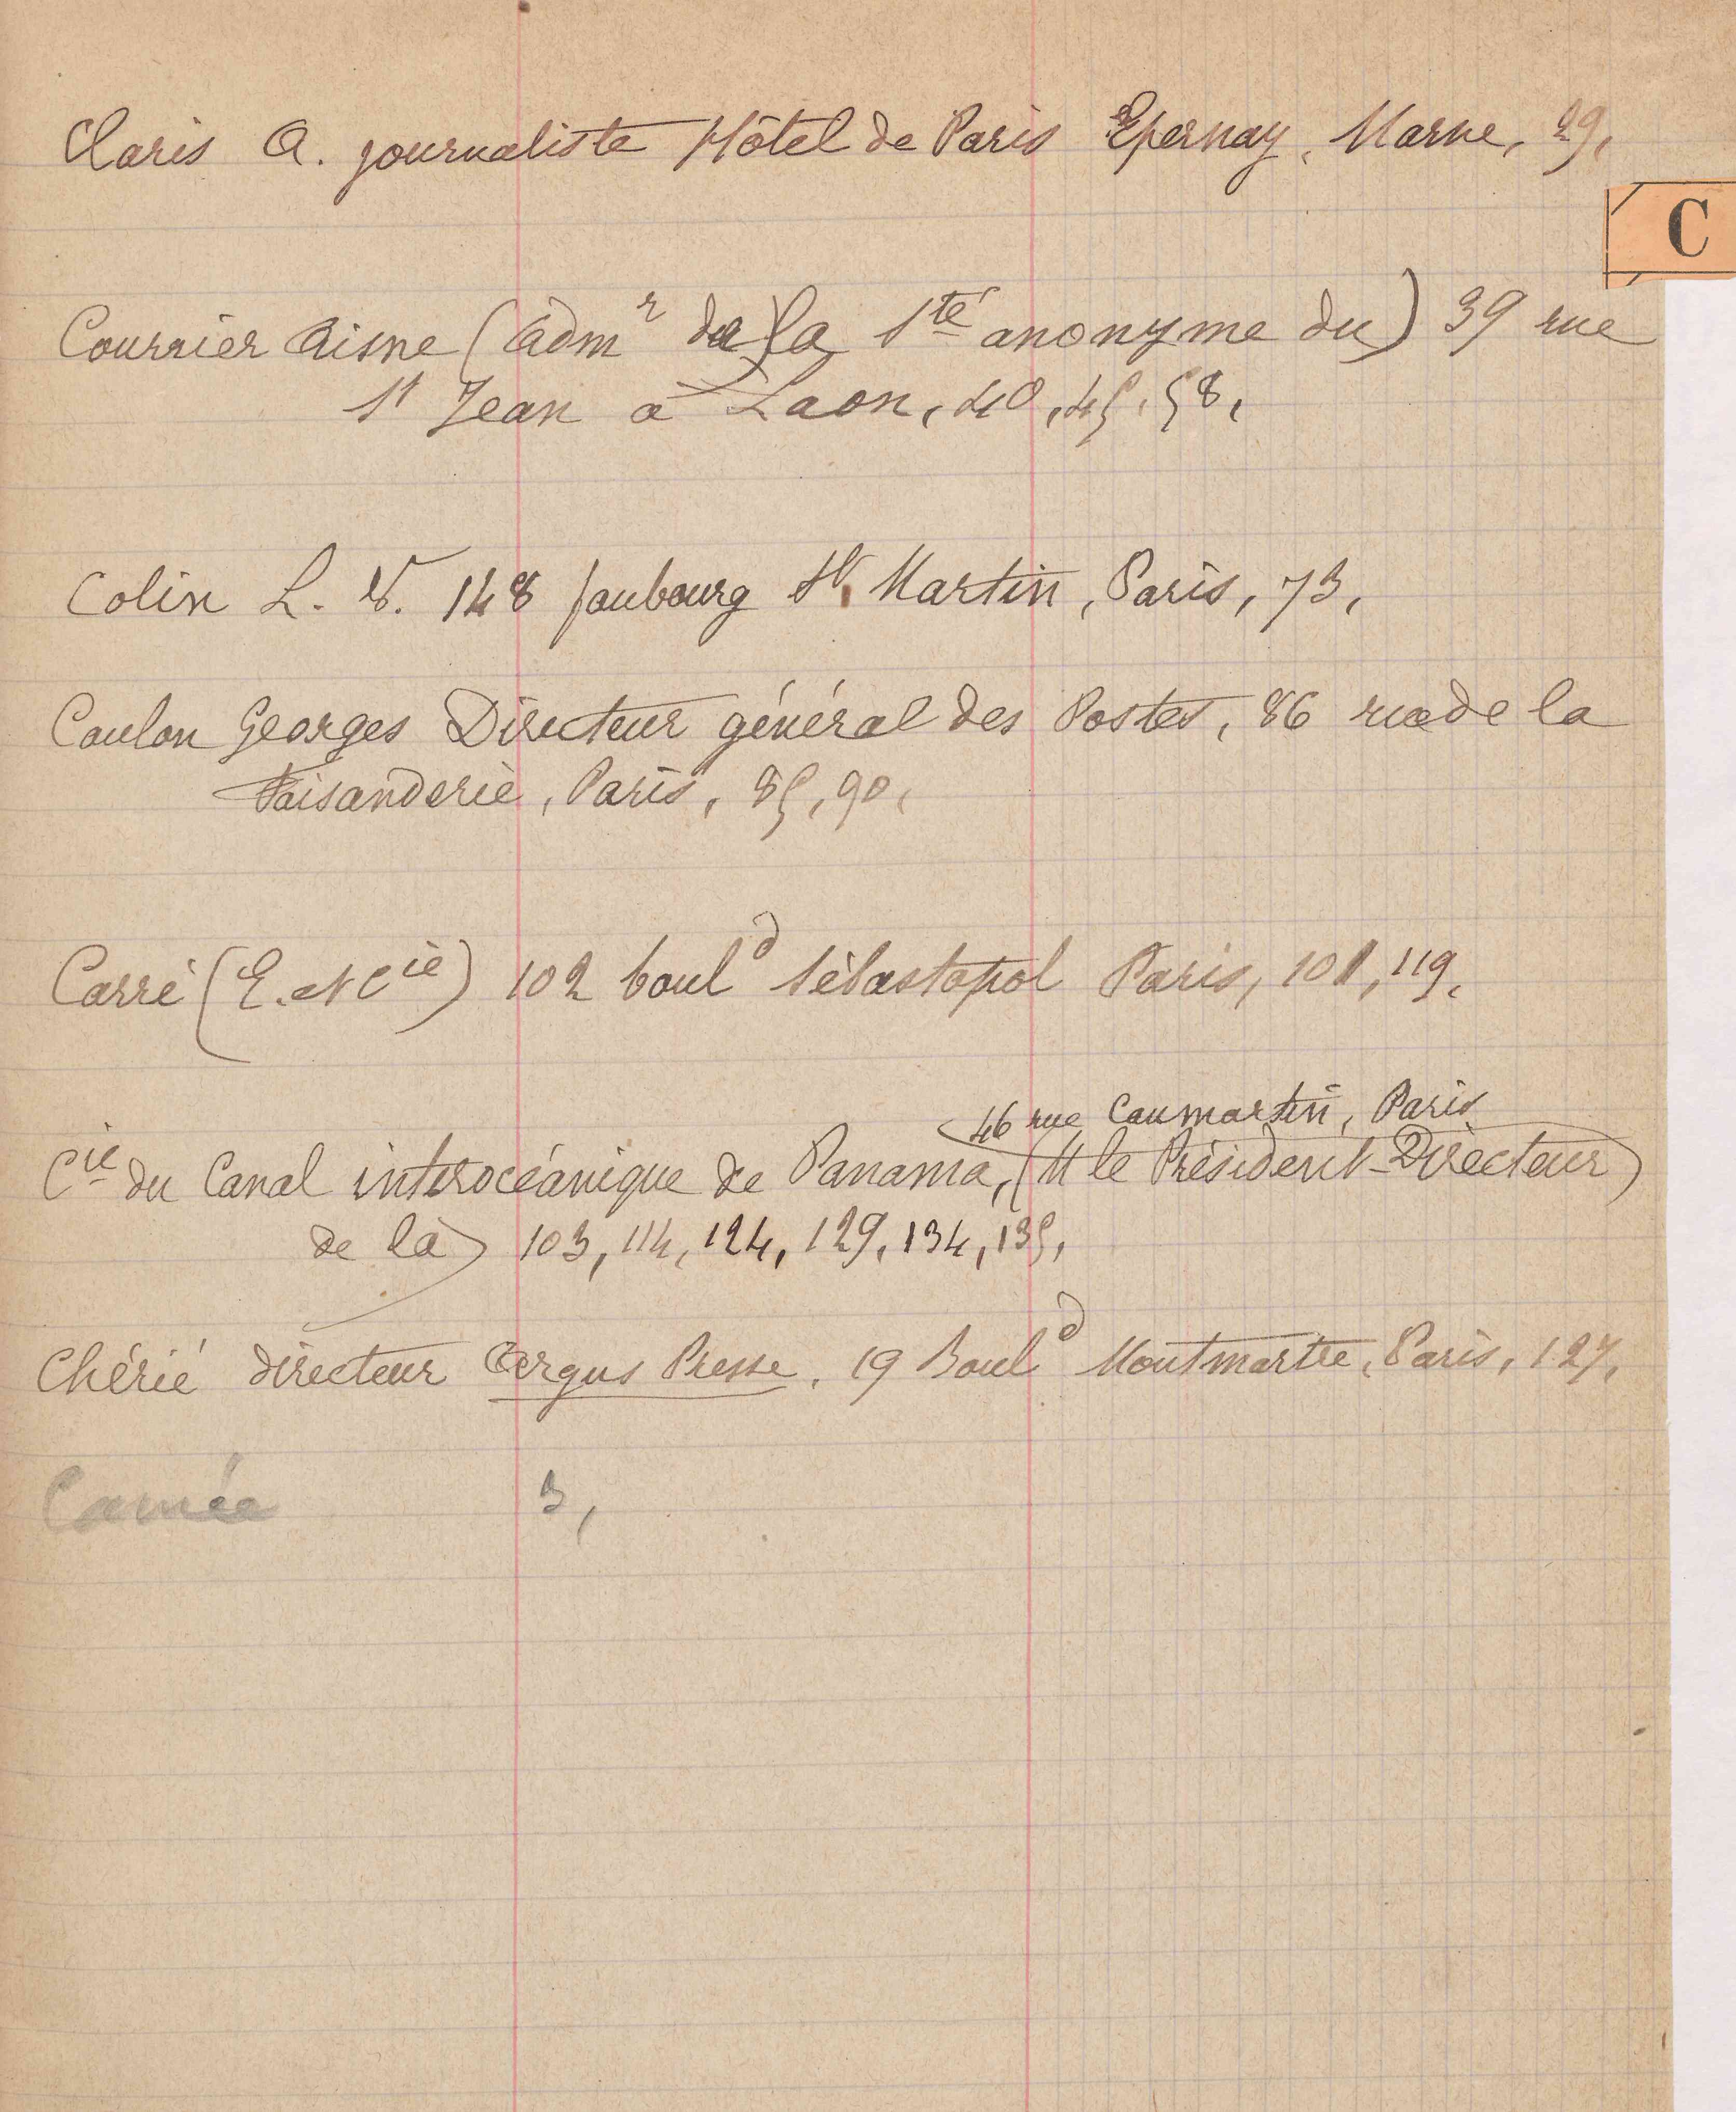 Claris A. journaliste Hôtel de Paris Epernay, Marne, 29,
C
Courrier Aisne (Admr de la Sté anonyme du) 39 rue
St Jean à Laon, 40, 45, 58,
Colin L. V. 148 faubourg St Martin, Paris, 73,
Coulon Georges Directeur général des Postes, 86 rue de la
Faisanderie, Paris, 85, 90,
Carré (E. et Cie) 102 bould Sébastopol Paris, 101, 119,
46 rue Caumartin, Paris
Cie du Canal interocéanique de Panama, (M le Président-Directeur
de la) 103, 114, 124, 129, 134, 135,
Chérié directeur Argus Presse, 19 Bould Montmartre, Paris, 127,
Camée 3,